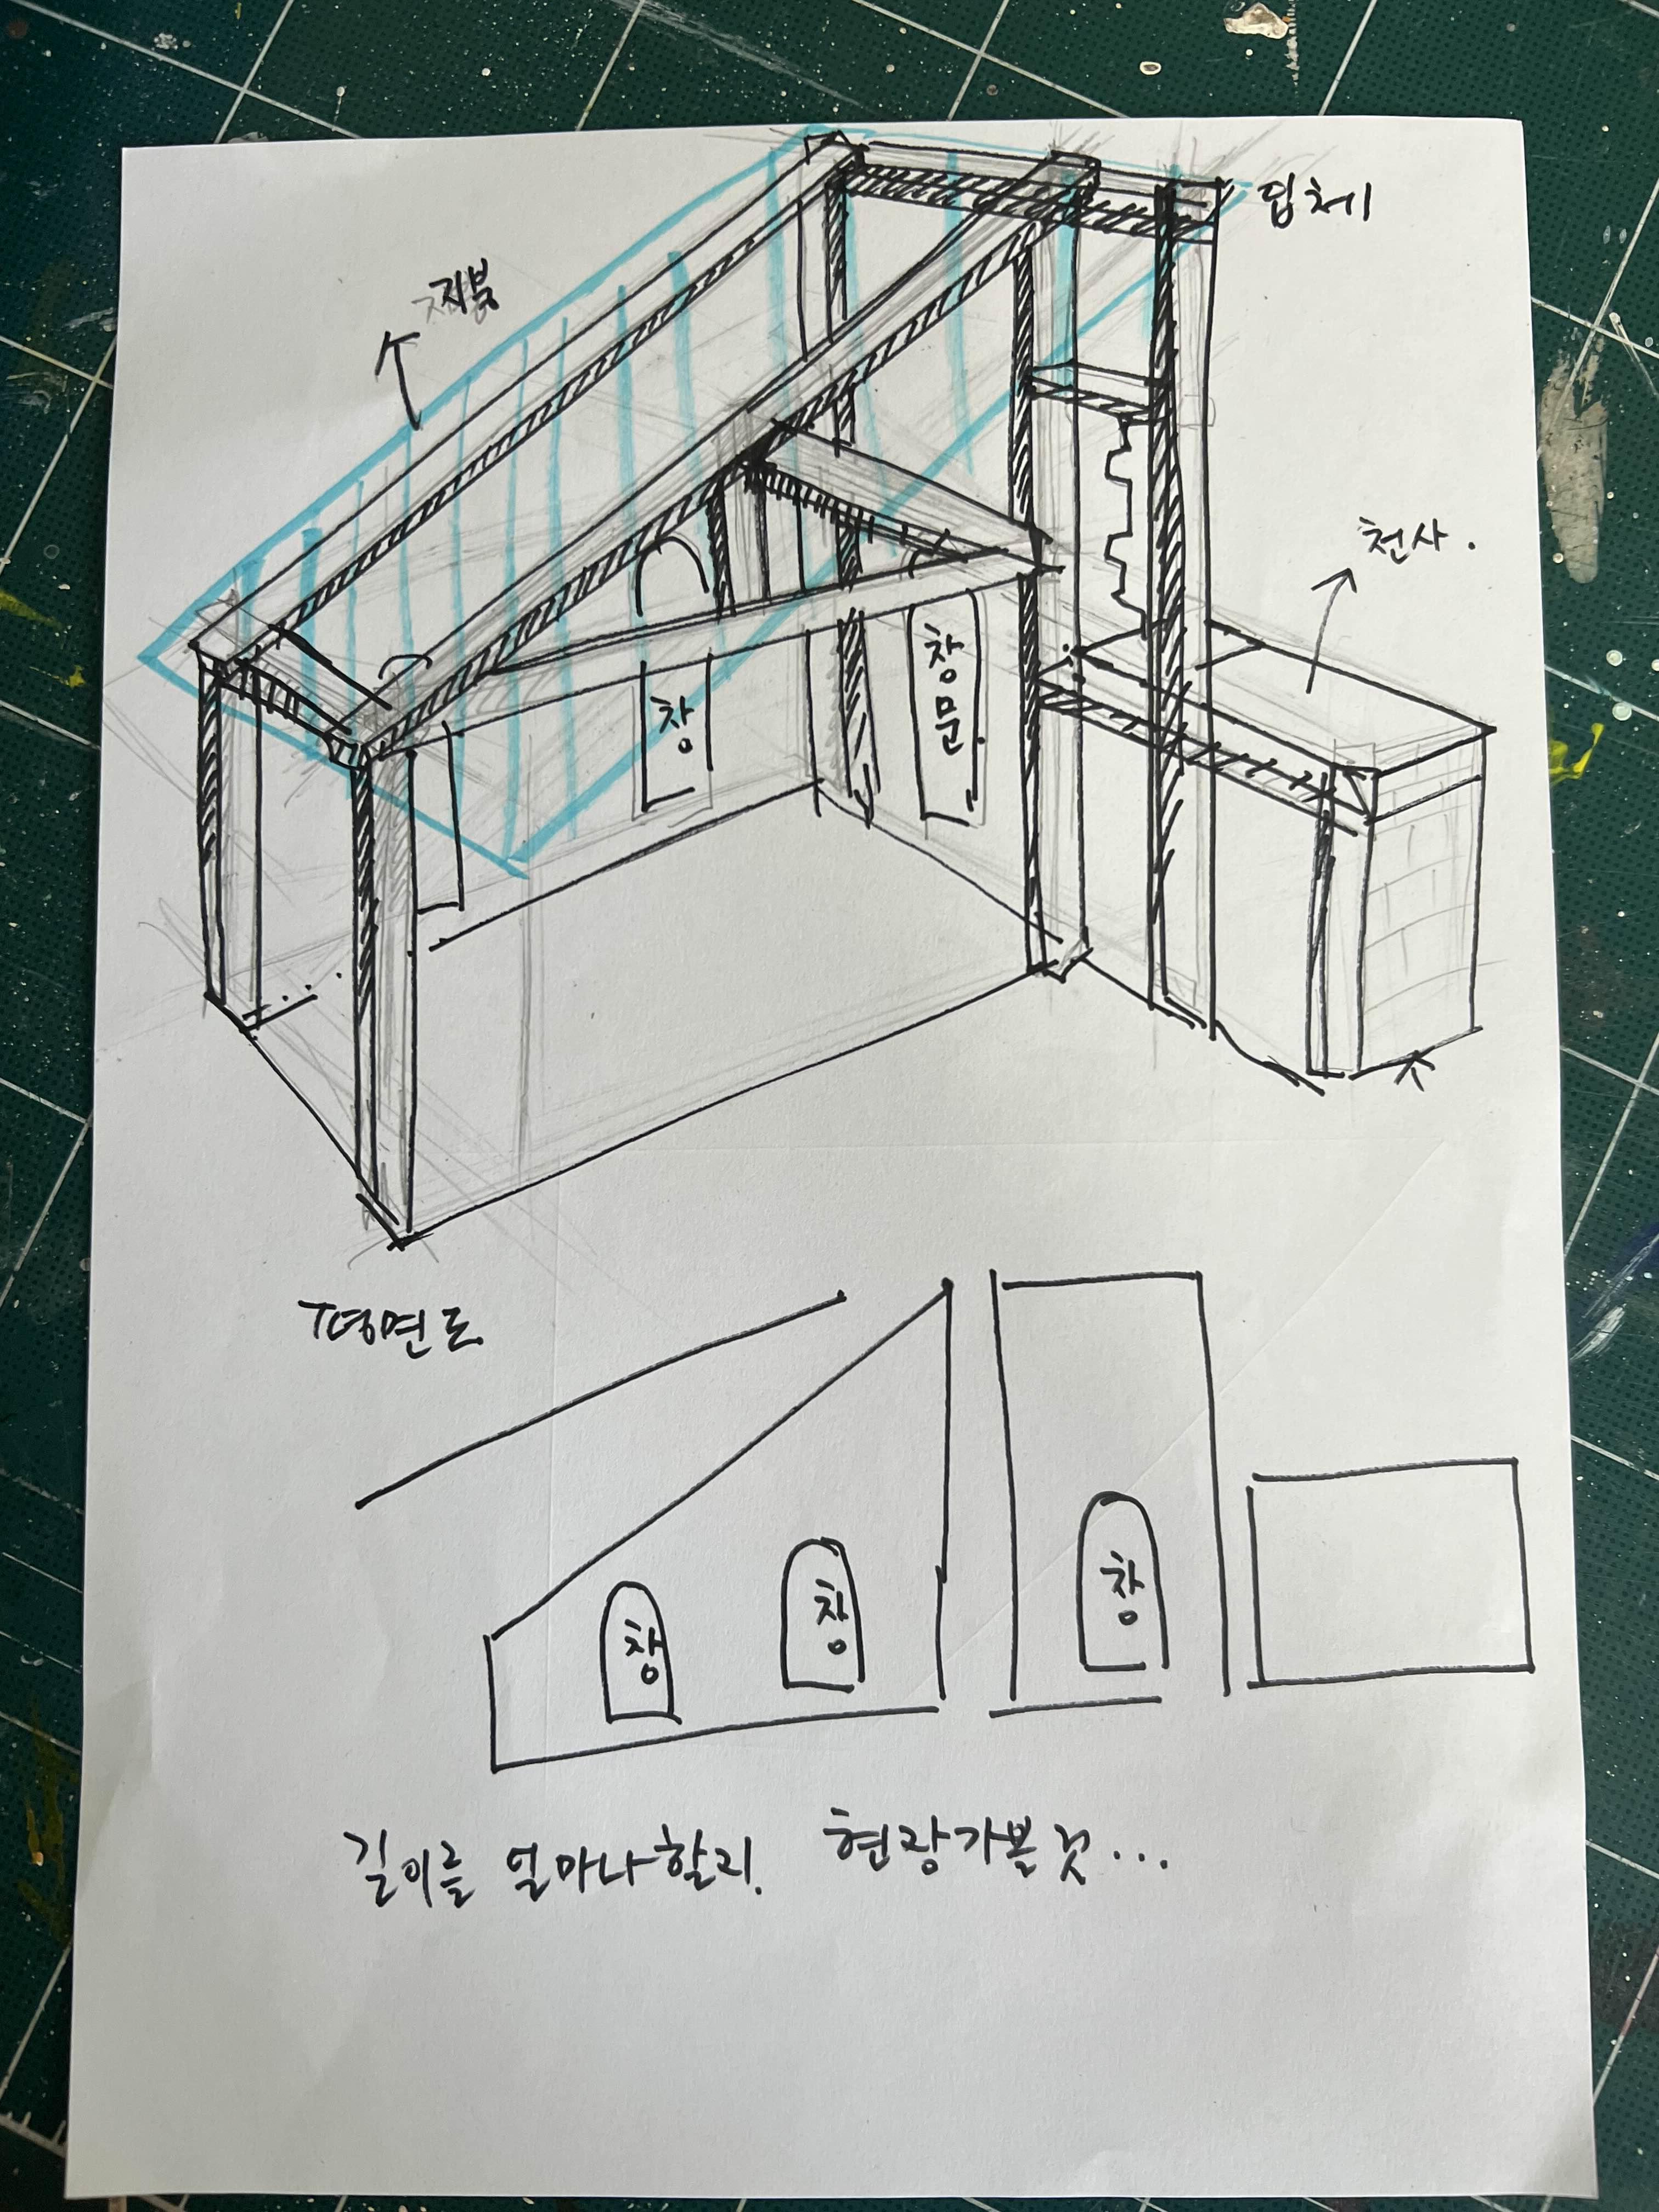 지붕
입체
천사.
창
창문.
평면도
창
창
창
길이를 얼마나할지. 현장가볼것...